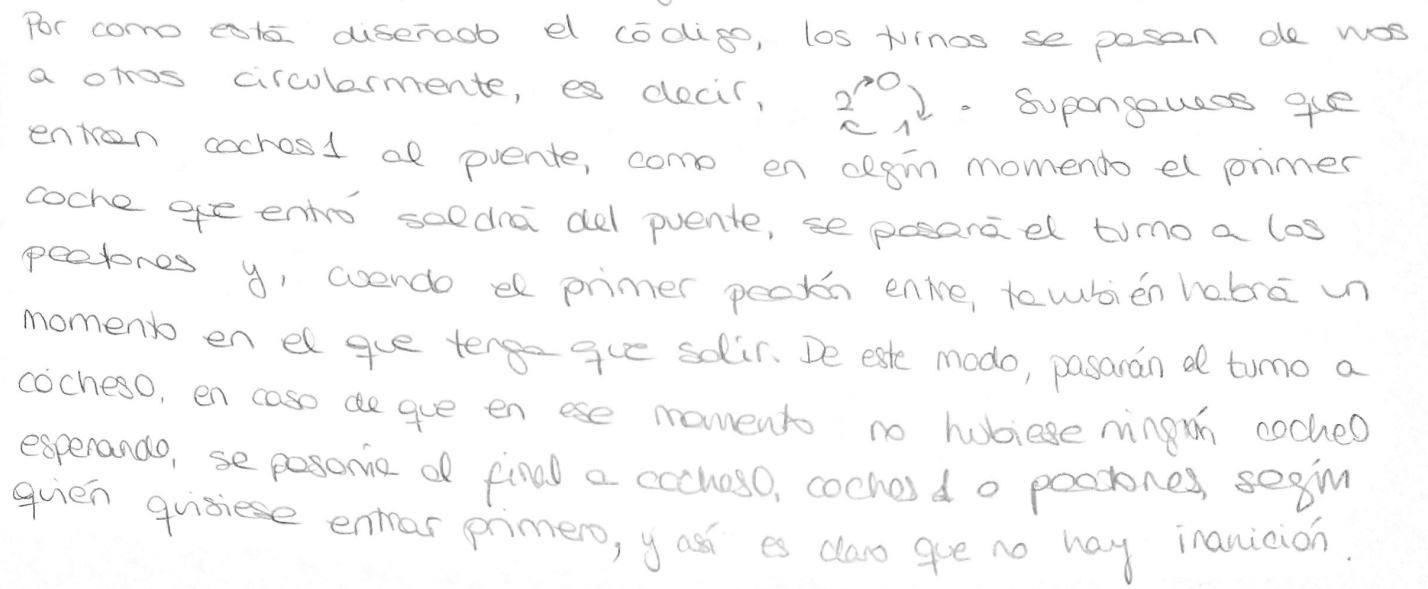 Por como está diseñado el código, los turnos se pasan de unos
a otros circularmente, es decir, 2 0 1 . Supongamos que
entran coches1 al puente, como en algún momento el primer
coche que entró saldrá del puente, se pasará el turno a los
peatones y, cuando el primer peatón entre, también habrá un
momento en el que tenga que salir. De este modo, pasarán el turno a
coches0, en caso de que en ese momento no hubiese ningún coche0
esperando, se pasaría al final a coches0, coches1 o peatones, según
quién quisiese entrar primero, y así es claro que no hay inanición.